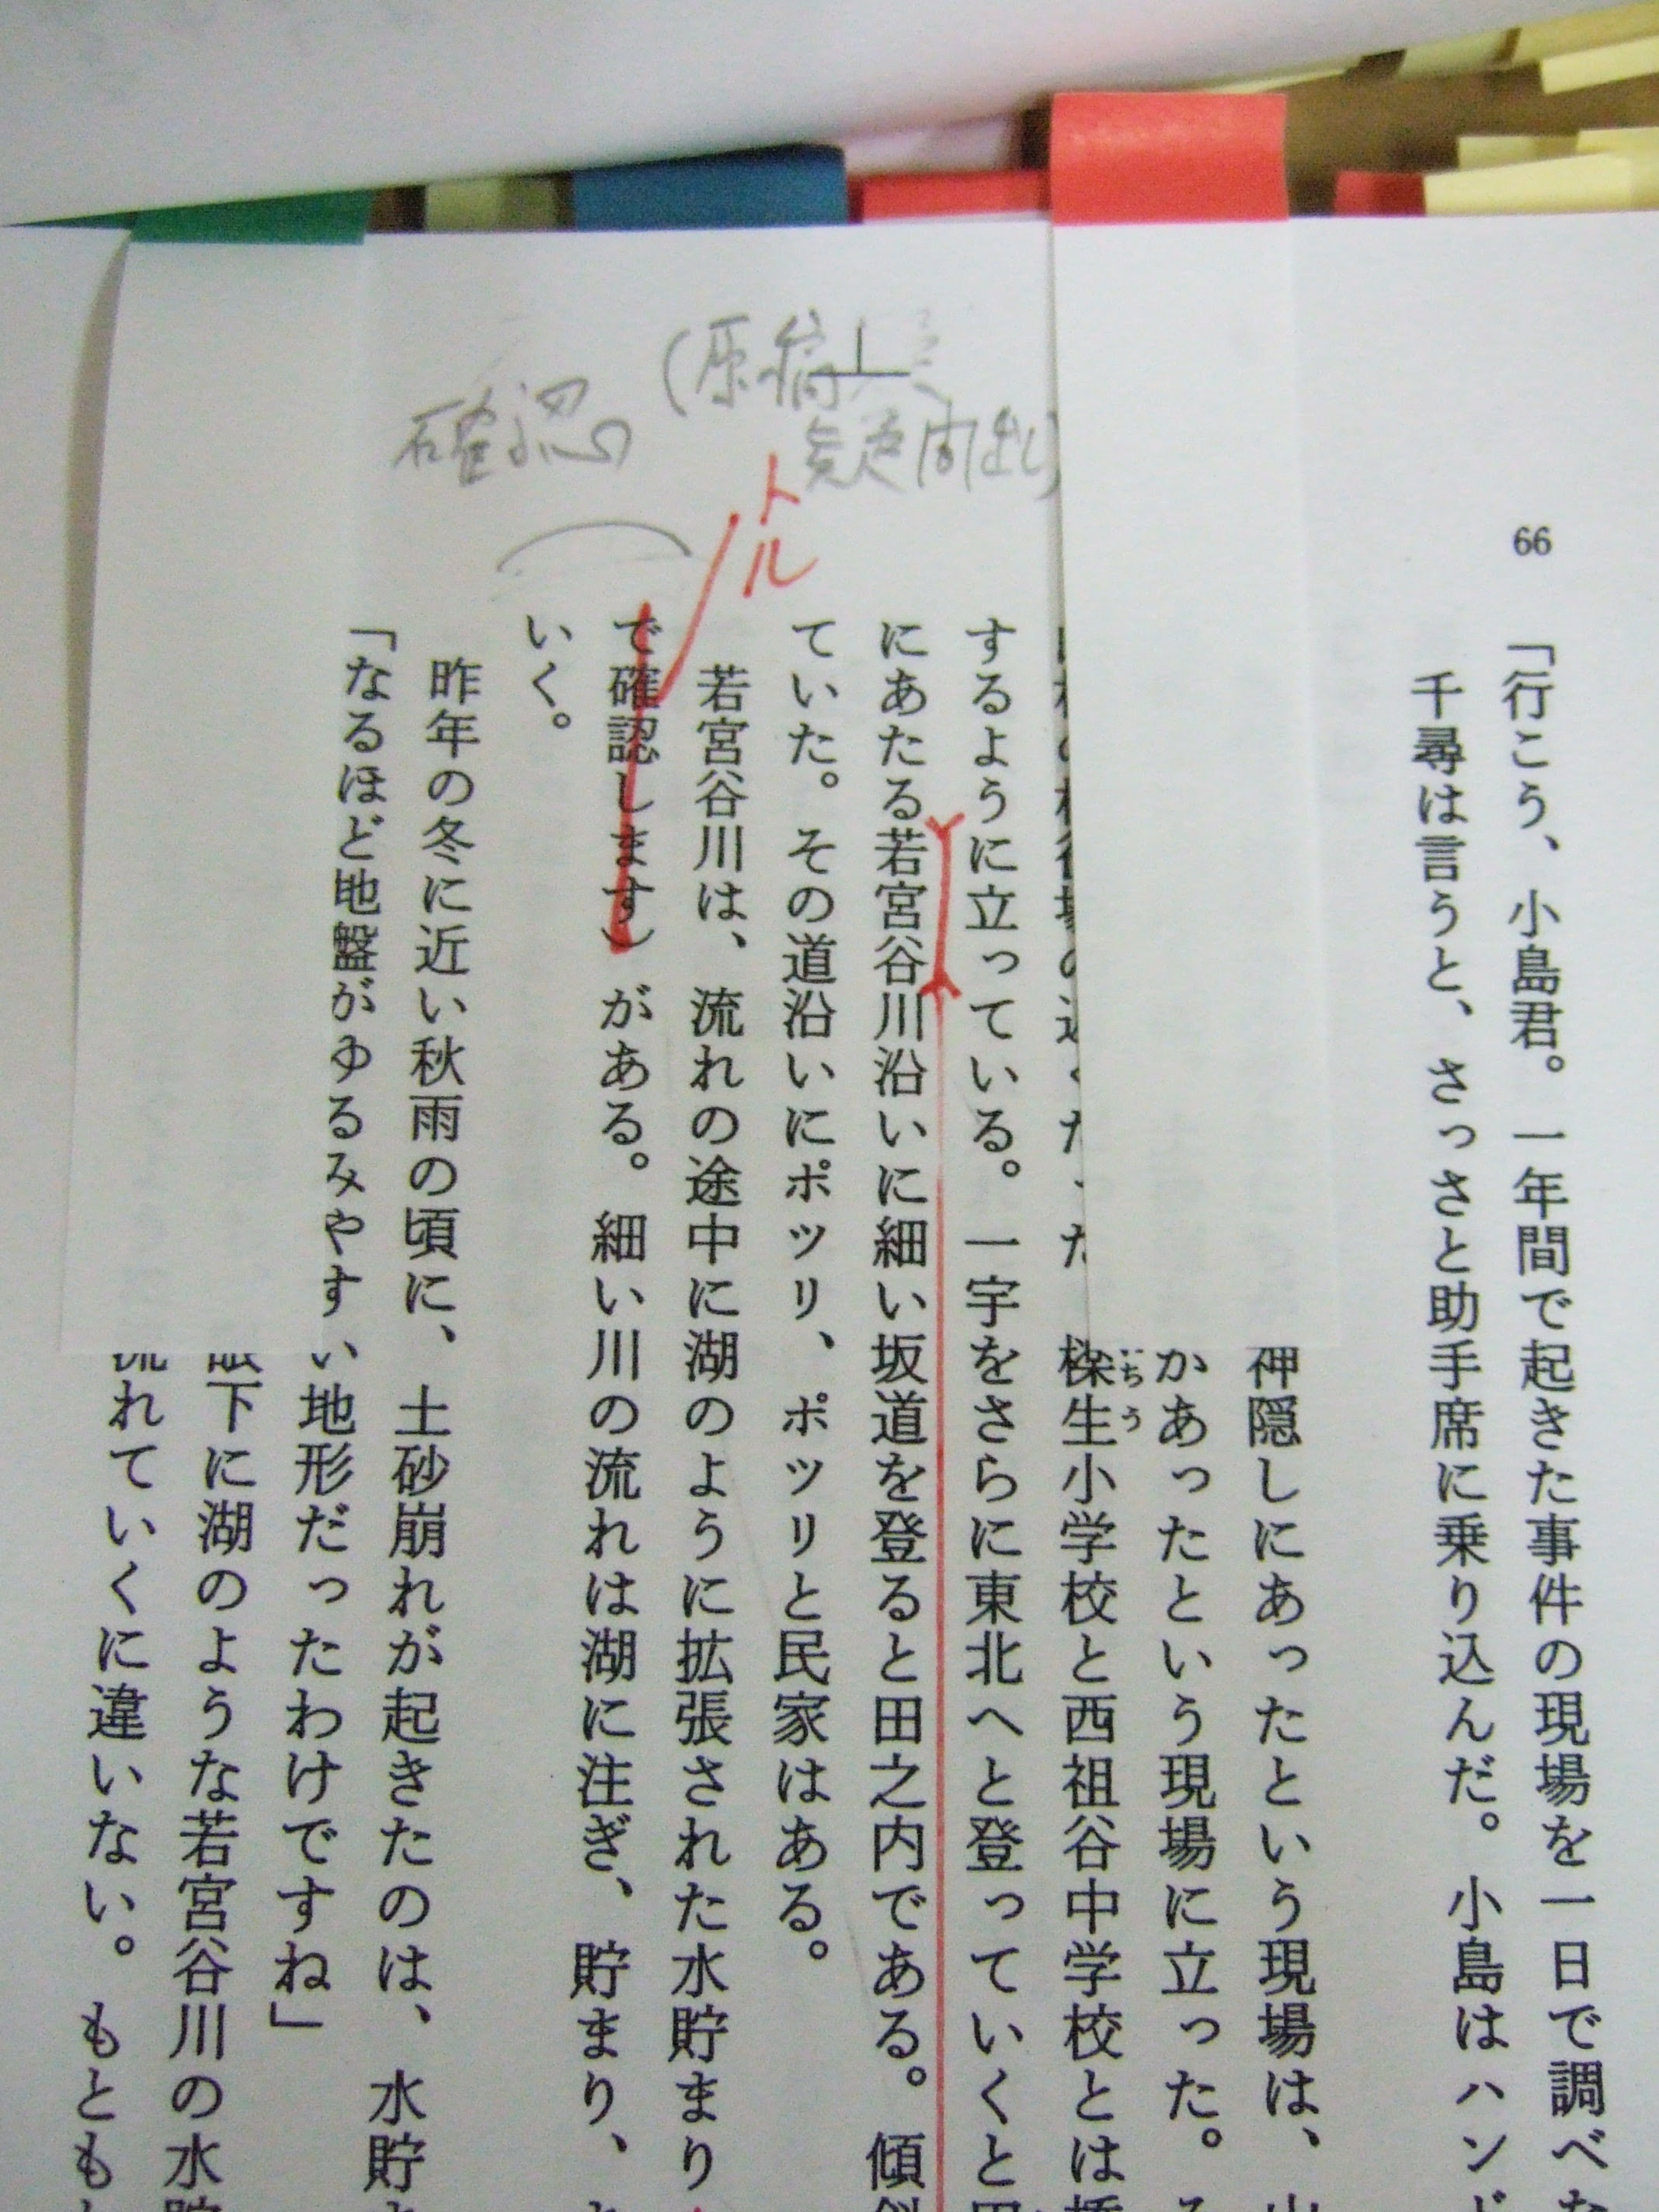 66
「行こう、小島君。一年間で起きた事件の現場を一日で調べ
千尋は言うと、さっさと助手席に乗り込んだ。小島はハン
神隠しにあったという現場は、
があったという現場に立った。
小学校と西祖谷中学校とは
いちう
するように立っている。一宇をさらに東北へと登っていくと
にあたる若宮谷川沿いに細い坂道を登ると田之内である。傾
ていた。その道沿いにポツリ、ポツリと民家はある。
若宮谷川は、流れの途中に湖のように拡張された水貯まり
で確認します)がある。細い川の流れは湖に注ぎ、貯まり、
いく。
昨年の冬に近い秋雨の頃に、土砂崩れが起きたのは、水貯
「なるほど地盤がゆるみやすい地形だったわけですね」
眼下に湖のような若宮谷川の水
流れていくに違いない。もとも
(原稿
疑問出し)
確認
トル